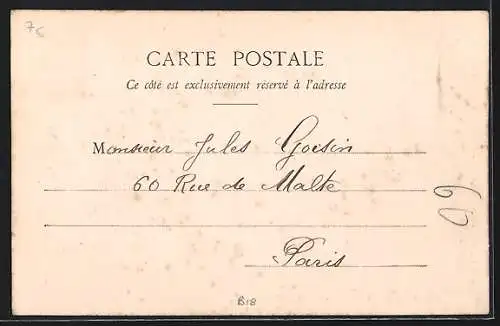 75
CARTE POSTALE
Ce côté est exclusivement réservé à l'adresse
Monsieur Jules Gossin
60 Rue de Malte
Paris
60
B18